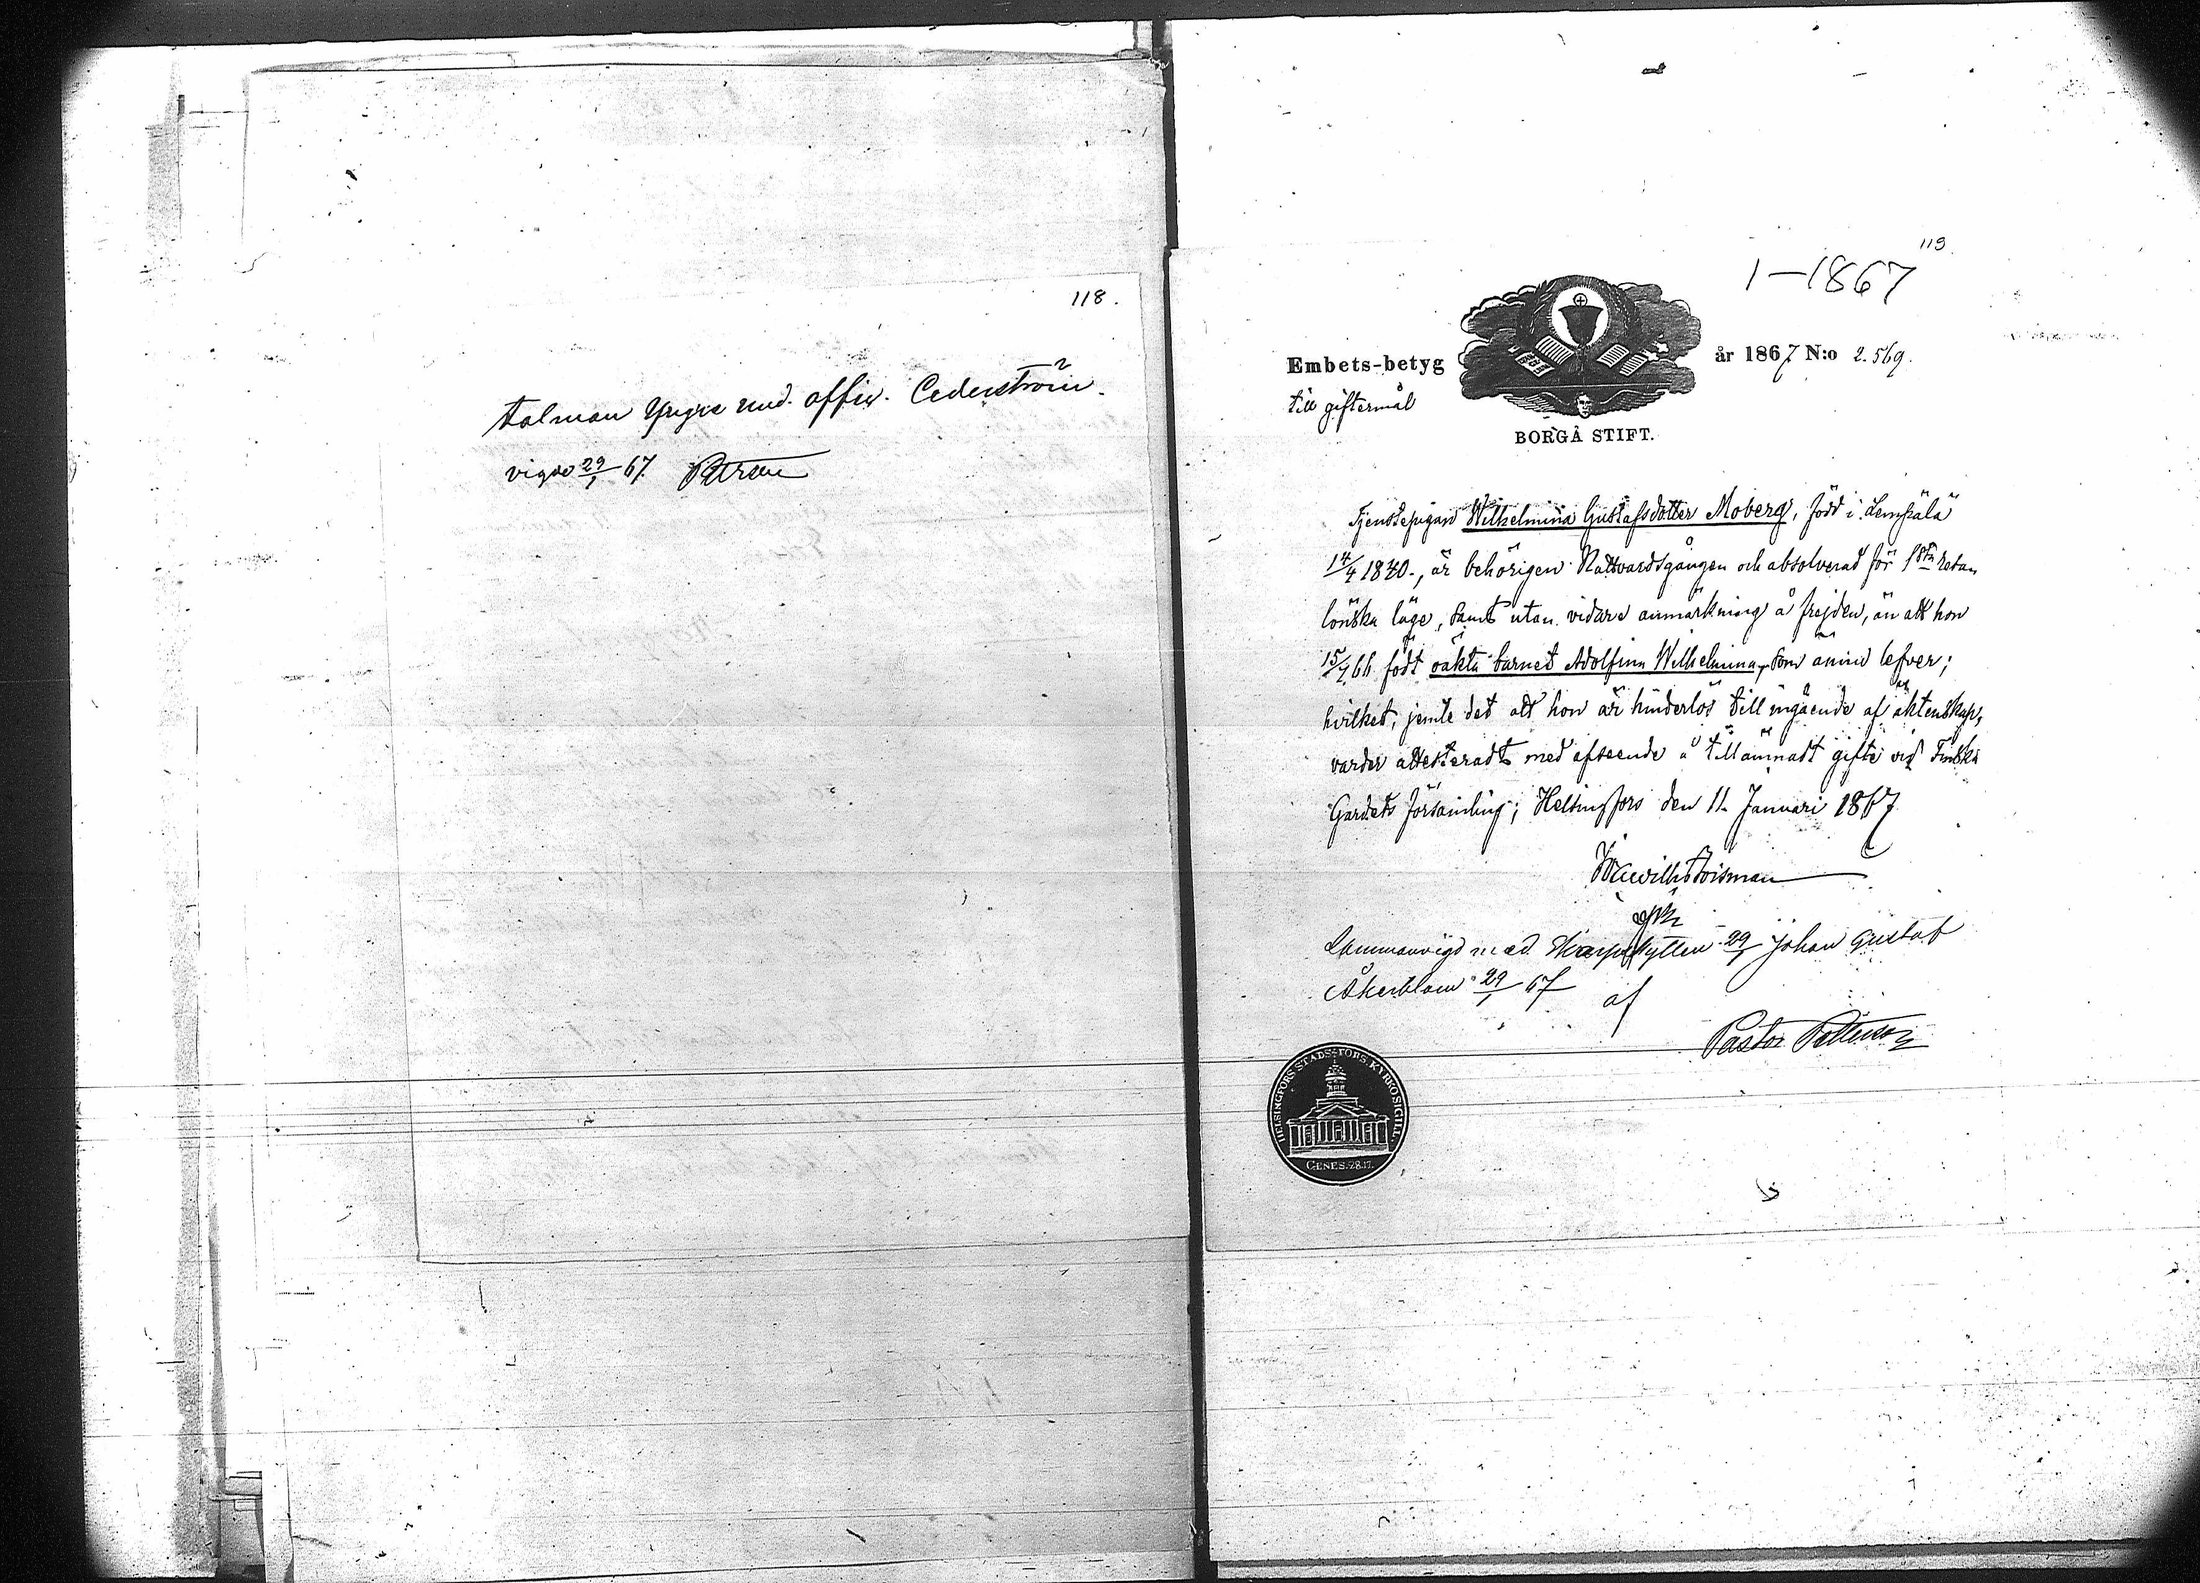 118.
talman Yngre und. offic. Cederström.
vigde 29/1 67.
119
1-1867
Embets-betyg år 1867 N:o 2.569.
till giftermål
BORGÅ STIFT.
Tjenstepigan Wilhelmina Gustafsdotter Moberg, född i Lempäälä
14/4 1840., är behörigen Nattvardsgången och absolverad för 1sta resan
lönska läge, samt utan vidare anmärkning å frejden, än att hon
15/7 66 födt oäkta barnet Adolfina Wilhelmina, som ännu lefver;
hvilket, jemte det att hon är hinderlös till ingående af äktenskap,
varder attesteradt med afseende å tillämnadt gifte vid Finska
Gardets församling; Helsingfors den 11. Januari 1867
Sammanvigd med Skarpskytten 29/1 Johan Gustaf
Åkerblom 29/1 67
af
Pastor Petterson
HELSINGFORS STADSFÖRS. KYRKOSIGILL.
GENES. 28.17.